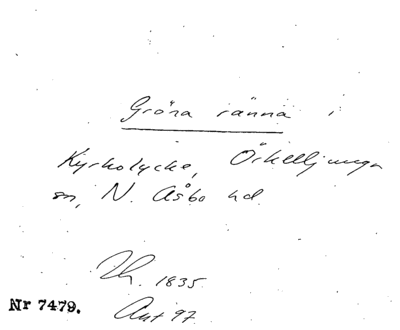 Gröna ränna i
Kyrkolycke, Örkelljunga
sn, N. Åsbo hd.
Lh. 1835
Nr 7479.
Ant 97